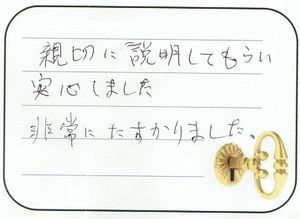 親切に説明してもらい
安心しました
非常にたすかりました。